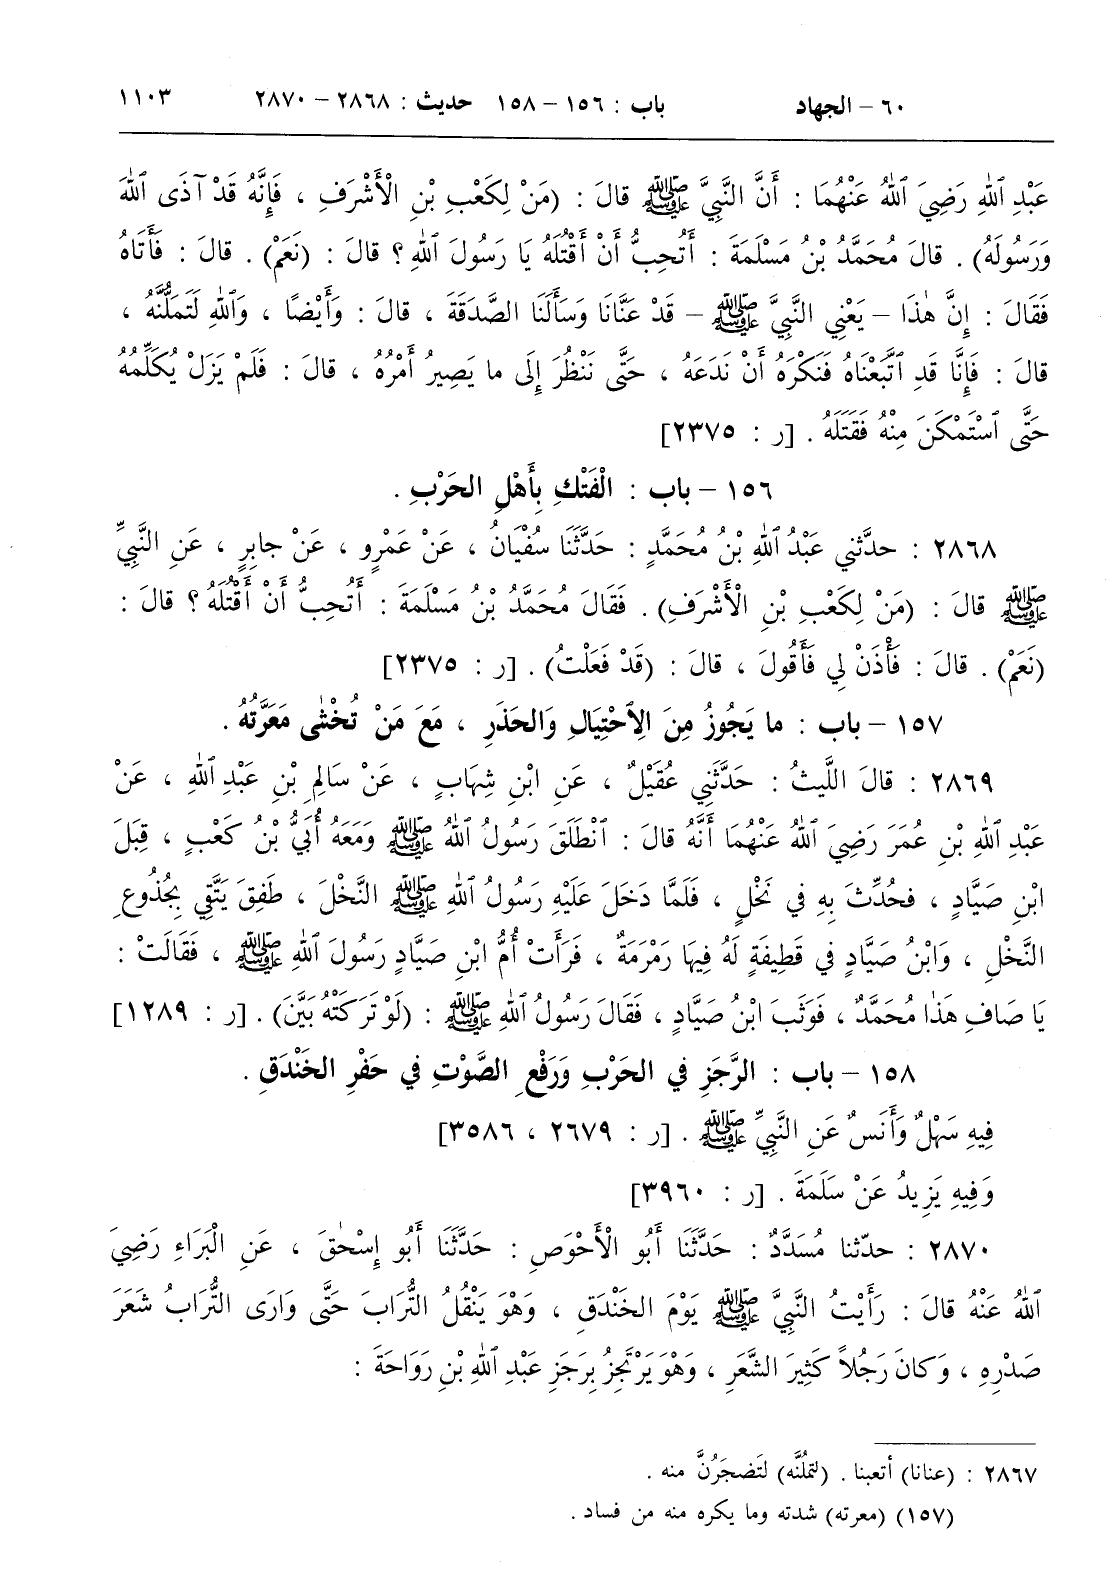 ٦٠ – الجهاد باب : ١٥٦ – ١٥٨ حديث : ٢٨٦٨ – ٢٨٧٠ ١١٠٣
عَبْدِ ٱللهِ رَضِيَ ٱللهُ عَنْهُمَا : أَنَّ النَّبِيَّ ﷺ قالَ : (مَنْ لِكَعْبِ بْنِ الْأَشْرَفِ ، فَإِنَّهُ قَدْ آذَى ٱللهَ
وَرَسُولَهُ) . قالَ مُحَمَّدُ بْنُ مَسْلَمَةَ : أَتُحِبُّ أَنْ أَقْتُلَهُ يَا رَسُولَ ٱللهِ ؟ قالَ : (نَعَمْ) . قالَ : فَأَتَاهُ
فَقَالَ : إِنَّ هٰذَا – يَعْنِي النَّبِيَّ ﷺ – قَدْ عَنَّانَا وَسَأَلَنَا الصَّدَقَةَ ، قالَ : وَأَيْضًا ، وَٱللهِ لَتَمَلُّنَّهُ ،
قالَ : فَإِنَّا قَدِ ٱتَّبَعْنَاهُ فَنَكْرَهُ أَنْ نَدَعَهُ ، حَتَّى نَنْظُرَ إِلَى ما يَصِيرُ أَمْرُهُ ، قالَ : فَلَمْ يَزَلْ يُكَلِّمُهُ
حَتَّى ٱسْتَمْكَنَ مِنْهُ فَقَتَلَهُ . [ر : ٢٣٧٥]
١٥٦ – باب : الْفَتْكِ بِأَهْلِ الحَرْبِ .
٢٨٦٨ : حدّثني عَبْدُ ٱللهِ بْنُ مُحَمَّدٍ : حَدَّثَنَا سُفْيَانُ ، عَنْ عَمْرٍو ، عَنْ جابِرٍ ، عَنِ النَّبِيِّ
ﷺ قالَ : (مَنْ لِكَعْبِ بْنِ الْأَشْرَفِ) . فَقَالَ مُحَمَّدُ بْنُ مَسْلَمَةَ : أَتُحِبُّ أَنْ أَقْتُلَهُ ؟ قالَ :
(نَعَمْ) . قالَ : فَأْذَنْ لِي فَأَقُولَ ، قالَ : (قَدْ فَعَلْتُ) . [ر : ٢٣٧٥]
١٥٧ – باب : ما يَجُوزُ مِنَ الِٱحْتِيَالِ وَالحَذَرِ ، مَعَ مَنْ تُخْشٰى مَعَرَّتُهُ .
٢٨٦٩ : قالَ اللَّيثُ : حَدَّثَنِي عُقَيْلٌ ، عَنِ ابْنِ شِهَابٍ ، عَنْ سَالِمِ بْنِ عَبْدِ ٱللهِ ، عَنْ
عَبْدِ ٱللهِ بْنِ عُمَرَ رَضِيَ ٱللهُ عَنْهُمَا أَنَّهُ قالَ : ٱنْطَلَقَ رَسُولُ ٱللهُ ﷺ وَمَعَهُ أُبَيُّ بْنُ كَعْبٍ ، قِبَلَ
ابْنِ صَيَّادٍ ، فَحُدِّثَ بِهِ في نَخْلٍ ، فَلَمَّا دَخَلَ عَلَيْهِ رَسُولُ ٱللهِ ﷺ النَّخْلَ ، طَفِقَ يَتَّقِي بِجُذُوعِ
النَّخْلِ ، وَابْنُ صَيَّادٍ في قَطِيفَةٍ لَهُ فِيهَا رَمْرَمَةٌ ، فَرَأَتْ أُمُّ ابْنِ صَيَّادٍ رَسُولَ ٱللهِ ﷺ ، فَقَالَتْ :
يَا صَافِ هٰذَا مُحَمَّدٌ ، فَوَثَبَ ابْنُ صَيَّادٍ ، فَقَالَ رَسُولُ ٱللهِ ﷺ : (لَوْ تَرَكَتْهُ بَيَّنَ) . [ر : ١٢٨٩]
١٥٨ – باب : الرَّجَزِ في الحَرْبِ وَرَفْعِ الصَّوْتِ في حَفْرِ الخَنْدَقِ .
فِيهِ سَهْلٌ وَأَنَسٌ عَنِ النَّبِيِّ ﷺ . [ر : ٢٦٧٩ ، ٣٥٨٦]
وَفِيهِ يَزِيدُ عَنْ سَلَمَةَ . [ر : ٣٩٦٠]
٢٨٧٠ : حدّثنا مُسَدَّدٌ : حَدَّثَنَا أَبُو الْأَحْوَصِ : حَدَّثَنَا أَبُو إِسْحٰقَ ، عَنِ الْبَرَاءِ رَضِيَ
ٱللهُ عَنْهُ قالَ : رَأَيْتُ النَّبِيَّ ﷺ يَوْمَ الخَنْدَقِ ، وَهْوَ يَنْقُلُ التُّرَابَ حَتَّى وَارَى التُّرَابُ شَعَرَ
صَدْرِهِ ، وَكانَ رَجُلاً كَثِيرَ الشَّعَرِ ، وَهْوَ يَرْتَجِزُ بِرَجَزِ عَبْدِ ٱللهِ بْنِ رَوَاحَةَ :
٢٨٦٧ : (عنانا) أتعبنا . (لتملُنَّه) لتَضجَرُنَّ منه .
(١٥٧) (معرته) شدته وما يكره منه من فساد .